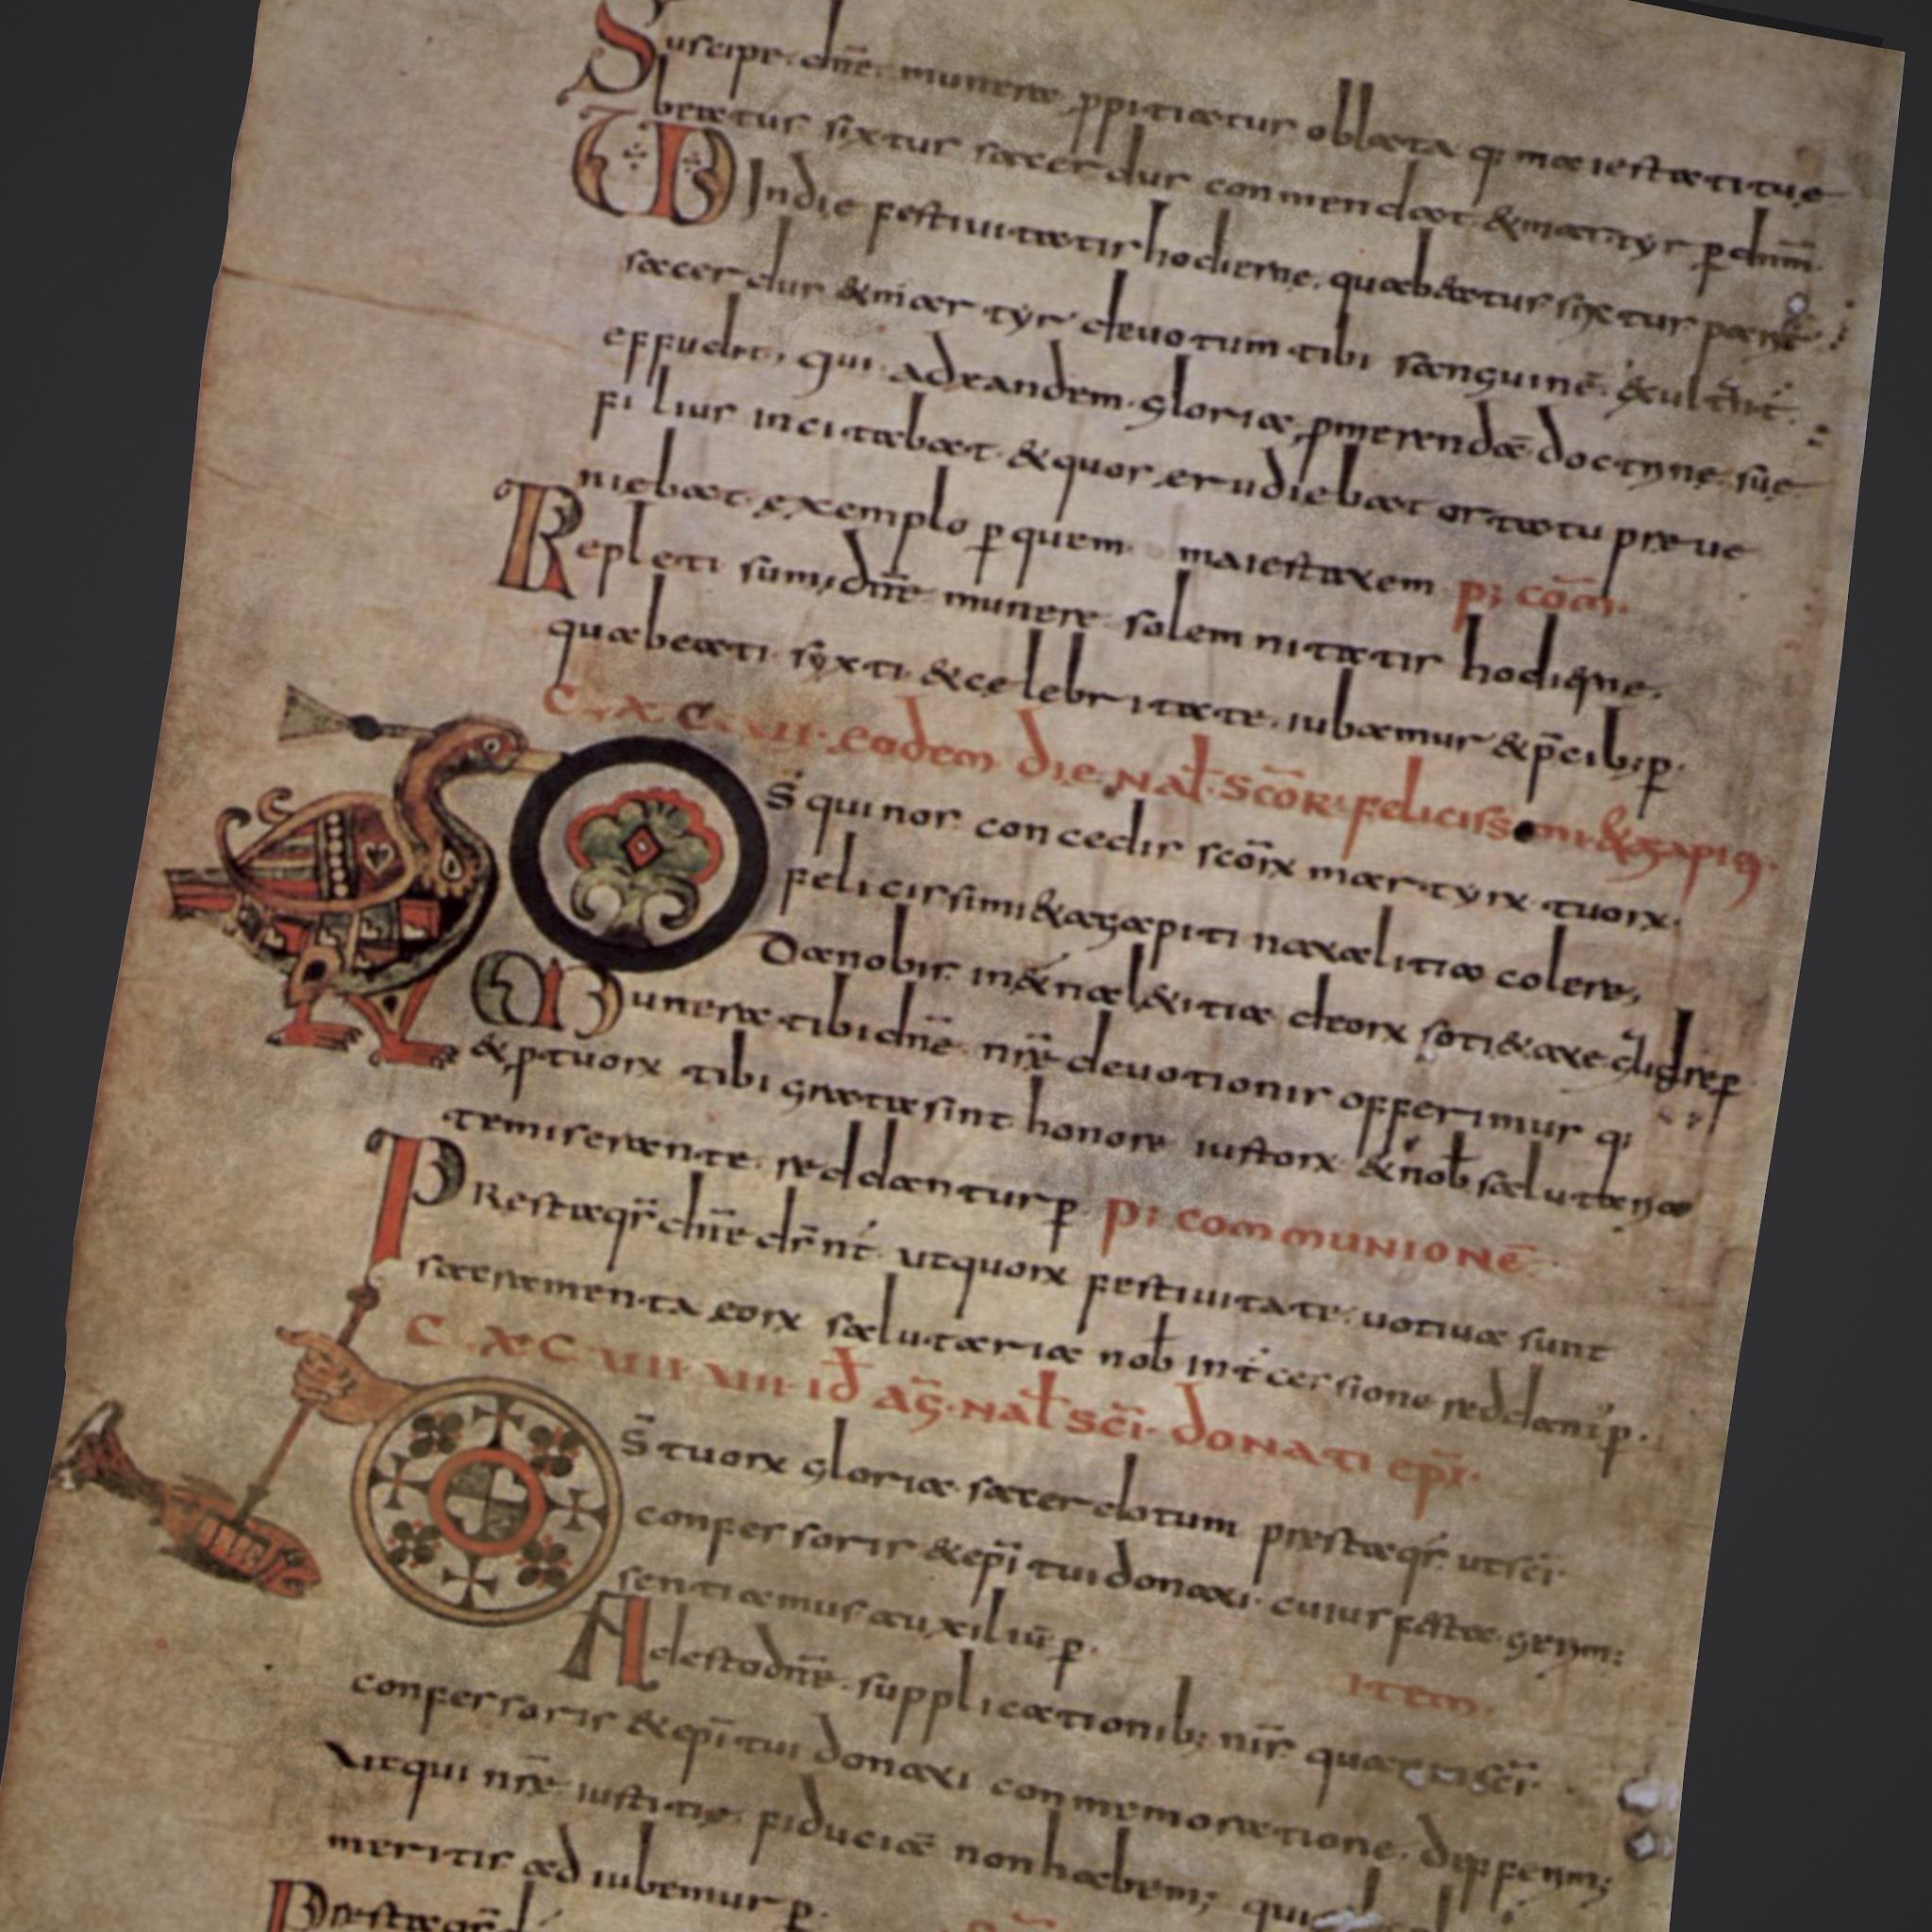 Suscipe dn̄e munera ppitiatur oblata q; maiestati tue
beatus sixtus sacerdus conmendat & martyr p dnm̄
VD In die festiuitatis hodierne qua beatus sixtus pariť
sacerdus & martyr deuotum tibi sanguinē exultanť
effudit, qui ad eandem gloria pmerendā doctrine sue
filius incitabat & quos erudiebat ortatu preue
niebat exemplo p quem maiestatem p; com̄
Repleti sum; dn̄e munere solemnitatis hodierne
qua beati syxti & celebritate iubamur & p̄cib; p
C XC VII eodem die nat̄ scōr felicissimi & agapiti
D S̄ qui nos concedis scōrx martyrx tuorx
felicissimi & agapiti natalitia colere,
Da nobis in &erna l&itia deorx
Munera tibi dn̄e nr̄e deuotionis offerimus q;
& p tuorx tibi grata sint honore iustorx & nob̄ salutaria
te miserante reddantur p p; communionē
Presta qs̄ dn̄e ds̄ nr̄ ut quorx festiuitate uotiua sunt
sacramenta eorx salutaria nob̄ int̄cessione reddant p
C XC VIII VIII id̄ ag̅ nat̄ scī donati epī
D S̄ tuorx gloria sacerdotum presta qs̄ ut scī
confessoris & epī tui donati cuius festa gerim;
sentiamus auxiliū p. item
Adesto dn̄e supplicationib; nr̄is quas scī
confessoris & epī tui donati conmemoratione deferim;
ut qui nr̄e iustitie fiduciā non habem;
meritis adiubemur p
Presta qs̄